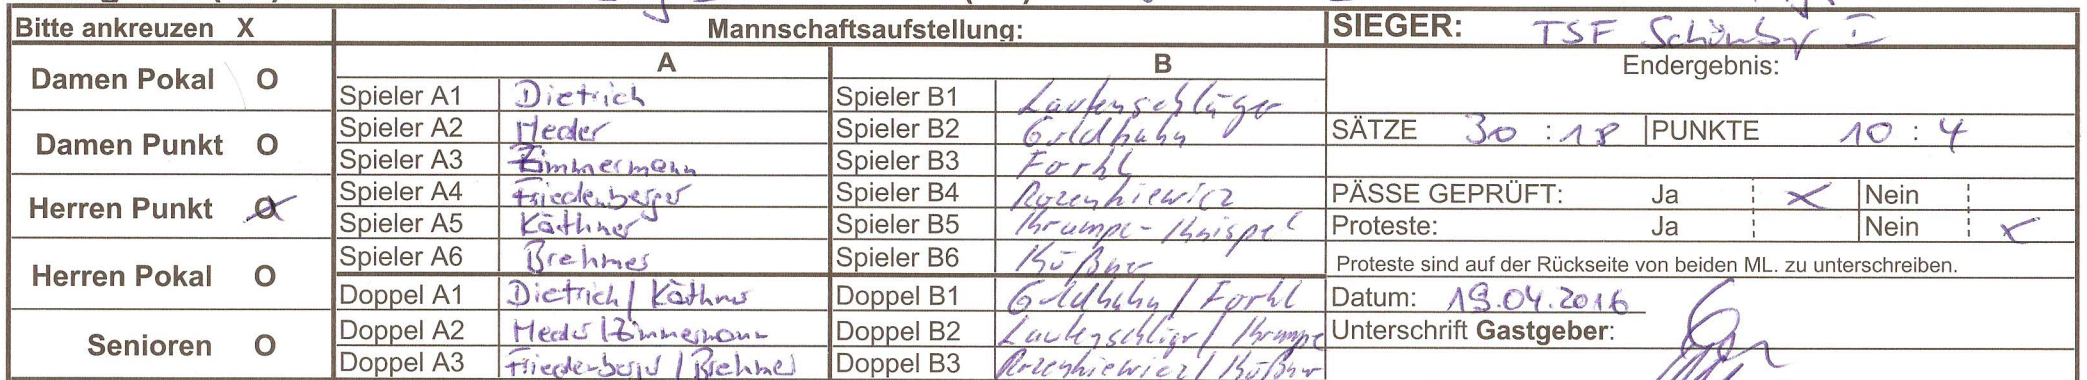 Bitte ankreuzen X
Damen Pokal O
Damen Punkt O
Herren Punkt O X
Herren Pokal O
Senioren O
Mannschaftsaufstellung:
A B
Spieler A1 Dietrich Spieler B1 Lautenschläger
Spieler A2 Heder Spieler B2 Goldhahn
Spieler A3 Zimmermann Spieler B3 Forkl
Spieler A4 Friedenberger Spieler B4
Spieler A5 Käthner Spieler B5 Krumpe-Knispel
Spieler A6 Brehmer Spieler B6
Doppel A1 Dietrich / Käthner Doppel B1 Goldhahn / Forkl
Doppel A2 Heder / Zimmermann Doppel B2 Lautenschläger / Krumpe
Doppel A3 Friedenberger / Brehmer Doppel B3
SIEGER: TSF I
Endergebnis:
SÄTZE 30 : 18 PUNKTE 10 : 4
PÄSSE GEPRÜFT: Ja X Nein
Proteste: Ja Nein X
Proteste sind auf der Rückseite von beiden ML. zu unterschreiben.
Datum: 19.04.2016
Unterschrift Gastgeber: